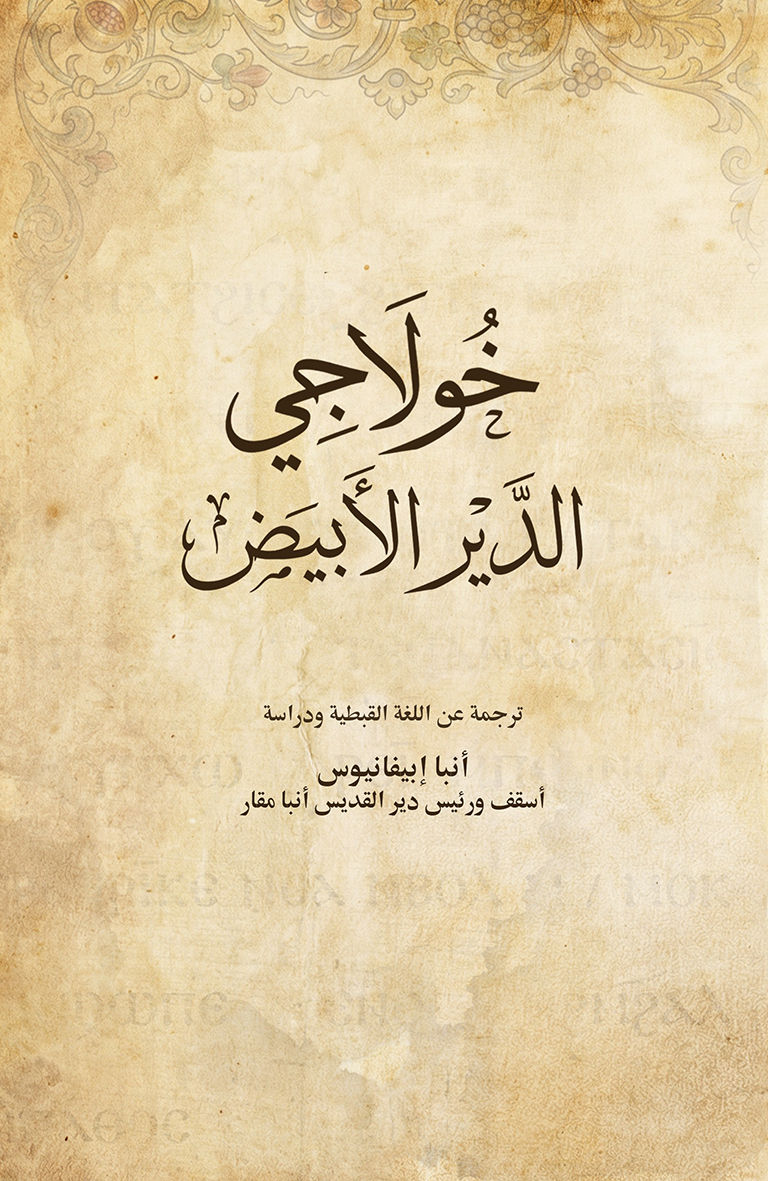 خُولَاجِي
الدَّيْر الأَبيَض
ترجمة عن اللغة القبطية ودراسة
أنبا إبيفانيوس
أسقف ورئيس دير القديس أنبا مقار